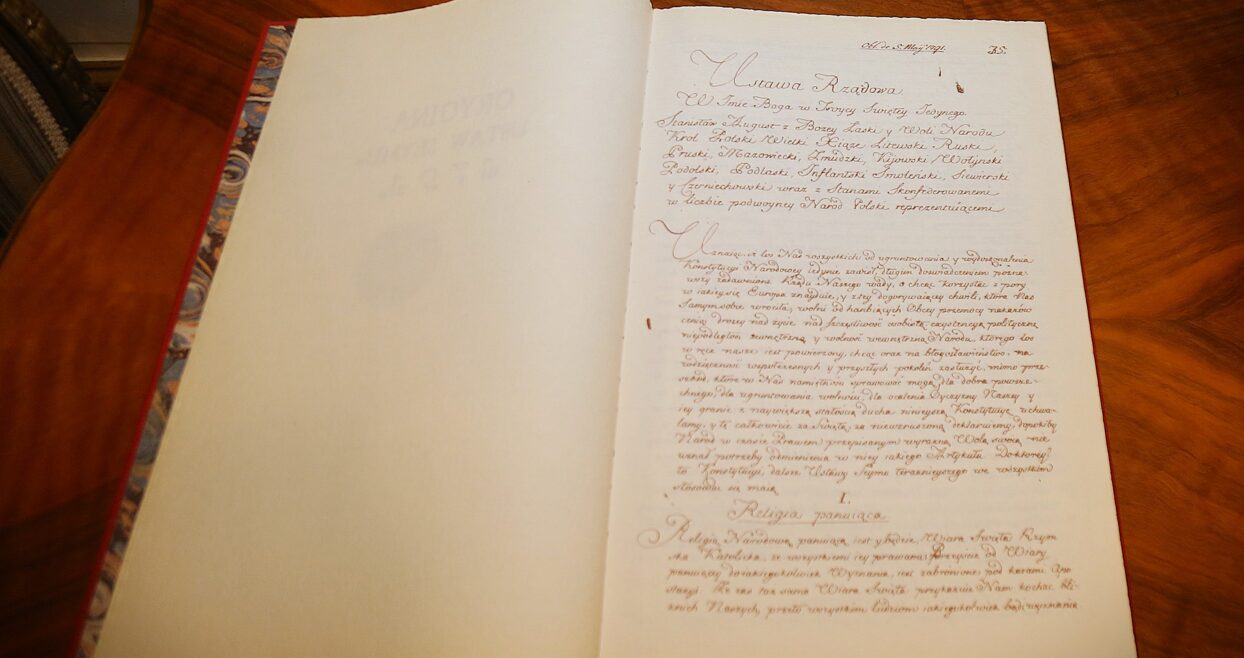 Obl. de 5. Maij 1791.
75.
Ustawa Rządowa.
W Imie Boga w Troycy Swiętey Jedynego.
Stanisław August z Bozey Łaski y Woli Narodu
Krol Polski Wielki Xiąze Litewski Ruski,
Pruski, Mazowiecki, Zmudzki, Kijowski Wołynski
Podolski, Podlaski, Inflantski Smolenski, Siewierski
y Czerniechowski wraz z Stanami Skonfederowanemi
w liczbie podwoyney Naród Polski reprezentuiącemi
Uznaiąc, iż los Nas wszystkich od ugruntowania y wydoskonalenia
Konstytucyi Narodowey iedynie zawisł, długim doswiadczeniem pozna-
wszy zadawnione Rządu Naszego wady, a chcąc korzystać z pory
w iakiey się Europa znayduie, y z tey dogorywaiącey chwili, która Nas
samym sobie wróciła, wolni od hanbiących Obcey przemocy nakazów
ceniąc drozey nad zycie, nad szczęsliwosć osobistą, exystencyą polityczną
niepodległosć zewnętrzną y wolnosć wewnętrzną Narodu, którego los
w ręce nasze iest powierzony, chcąc oraz na błogosławienstwo, na
wdzięcznosć współczesnych y przyszłych pokolen zasłuzyć, mimo prze-
szkód, które w Nas namiętnosci sprawować mogą, dla dobra powsze-
chnego, dla ugruntowania wolnosci, dla ocalenia Oyczyzny Naszey y
iey granic z naywiększą stałoscią ducha ninieyszą Konstytucyę uchwa-
lamy, y tę całkowicie za swiętą, za niewzruszoną deklaruiemy, dopokiby
Naród w czasie Prawem przepisanym wyrazną Wolą swoią nie
uznał potrzeby odmienienia w niey iakiego Artykułu. Do którey
to Konstytucyi, dalsze Ustawy Seymu teraznieyszego we wszystkim
stosować się maią.
I.
Religia panuiąca
Religią Narodową panuiącą iest y będzie Wiara Swięta Rzym-
ska Katolicka, ze wszystkiemi iey prawami. Przeyscie od Wiary
panuiącey do iakiegokolwiek Wyznania, iest zabronione pod karami Apo-
stazyi. Ze zas taz sama Wiara Swięta przykazuie Nam kochać bli-
znich Naszych, przeto wszystkim ludziom iakiegokolwiek bądz wyznania